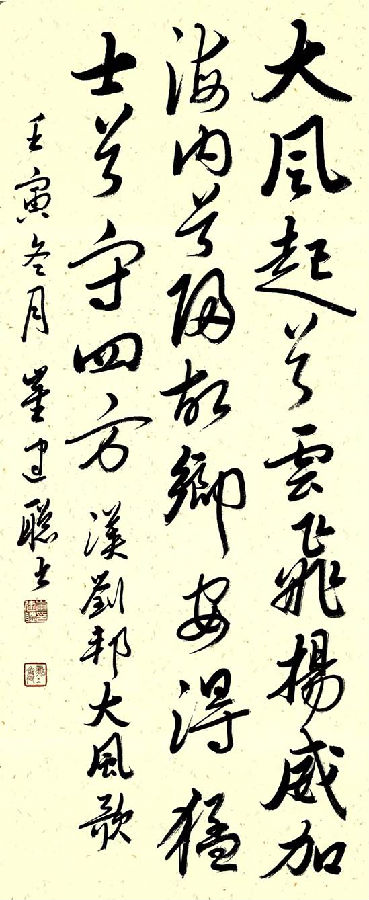 大風起兮雲飛揚威加
海内兮歸故鄉安得猛
士兮守四方 漢劉邦大風歌
壬寅冬月董建聰書